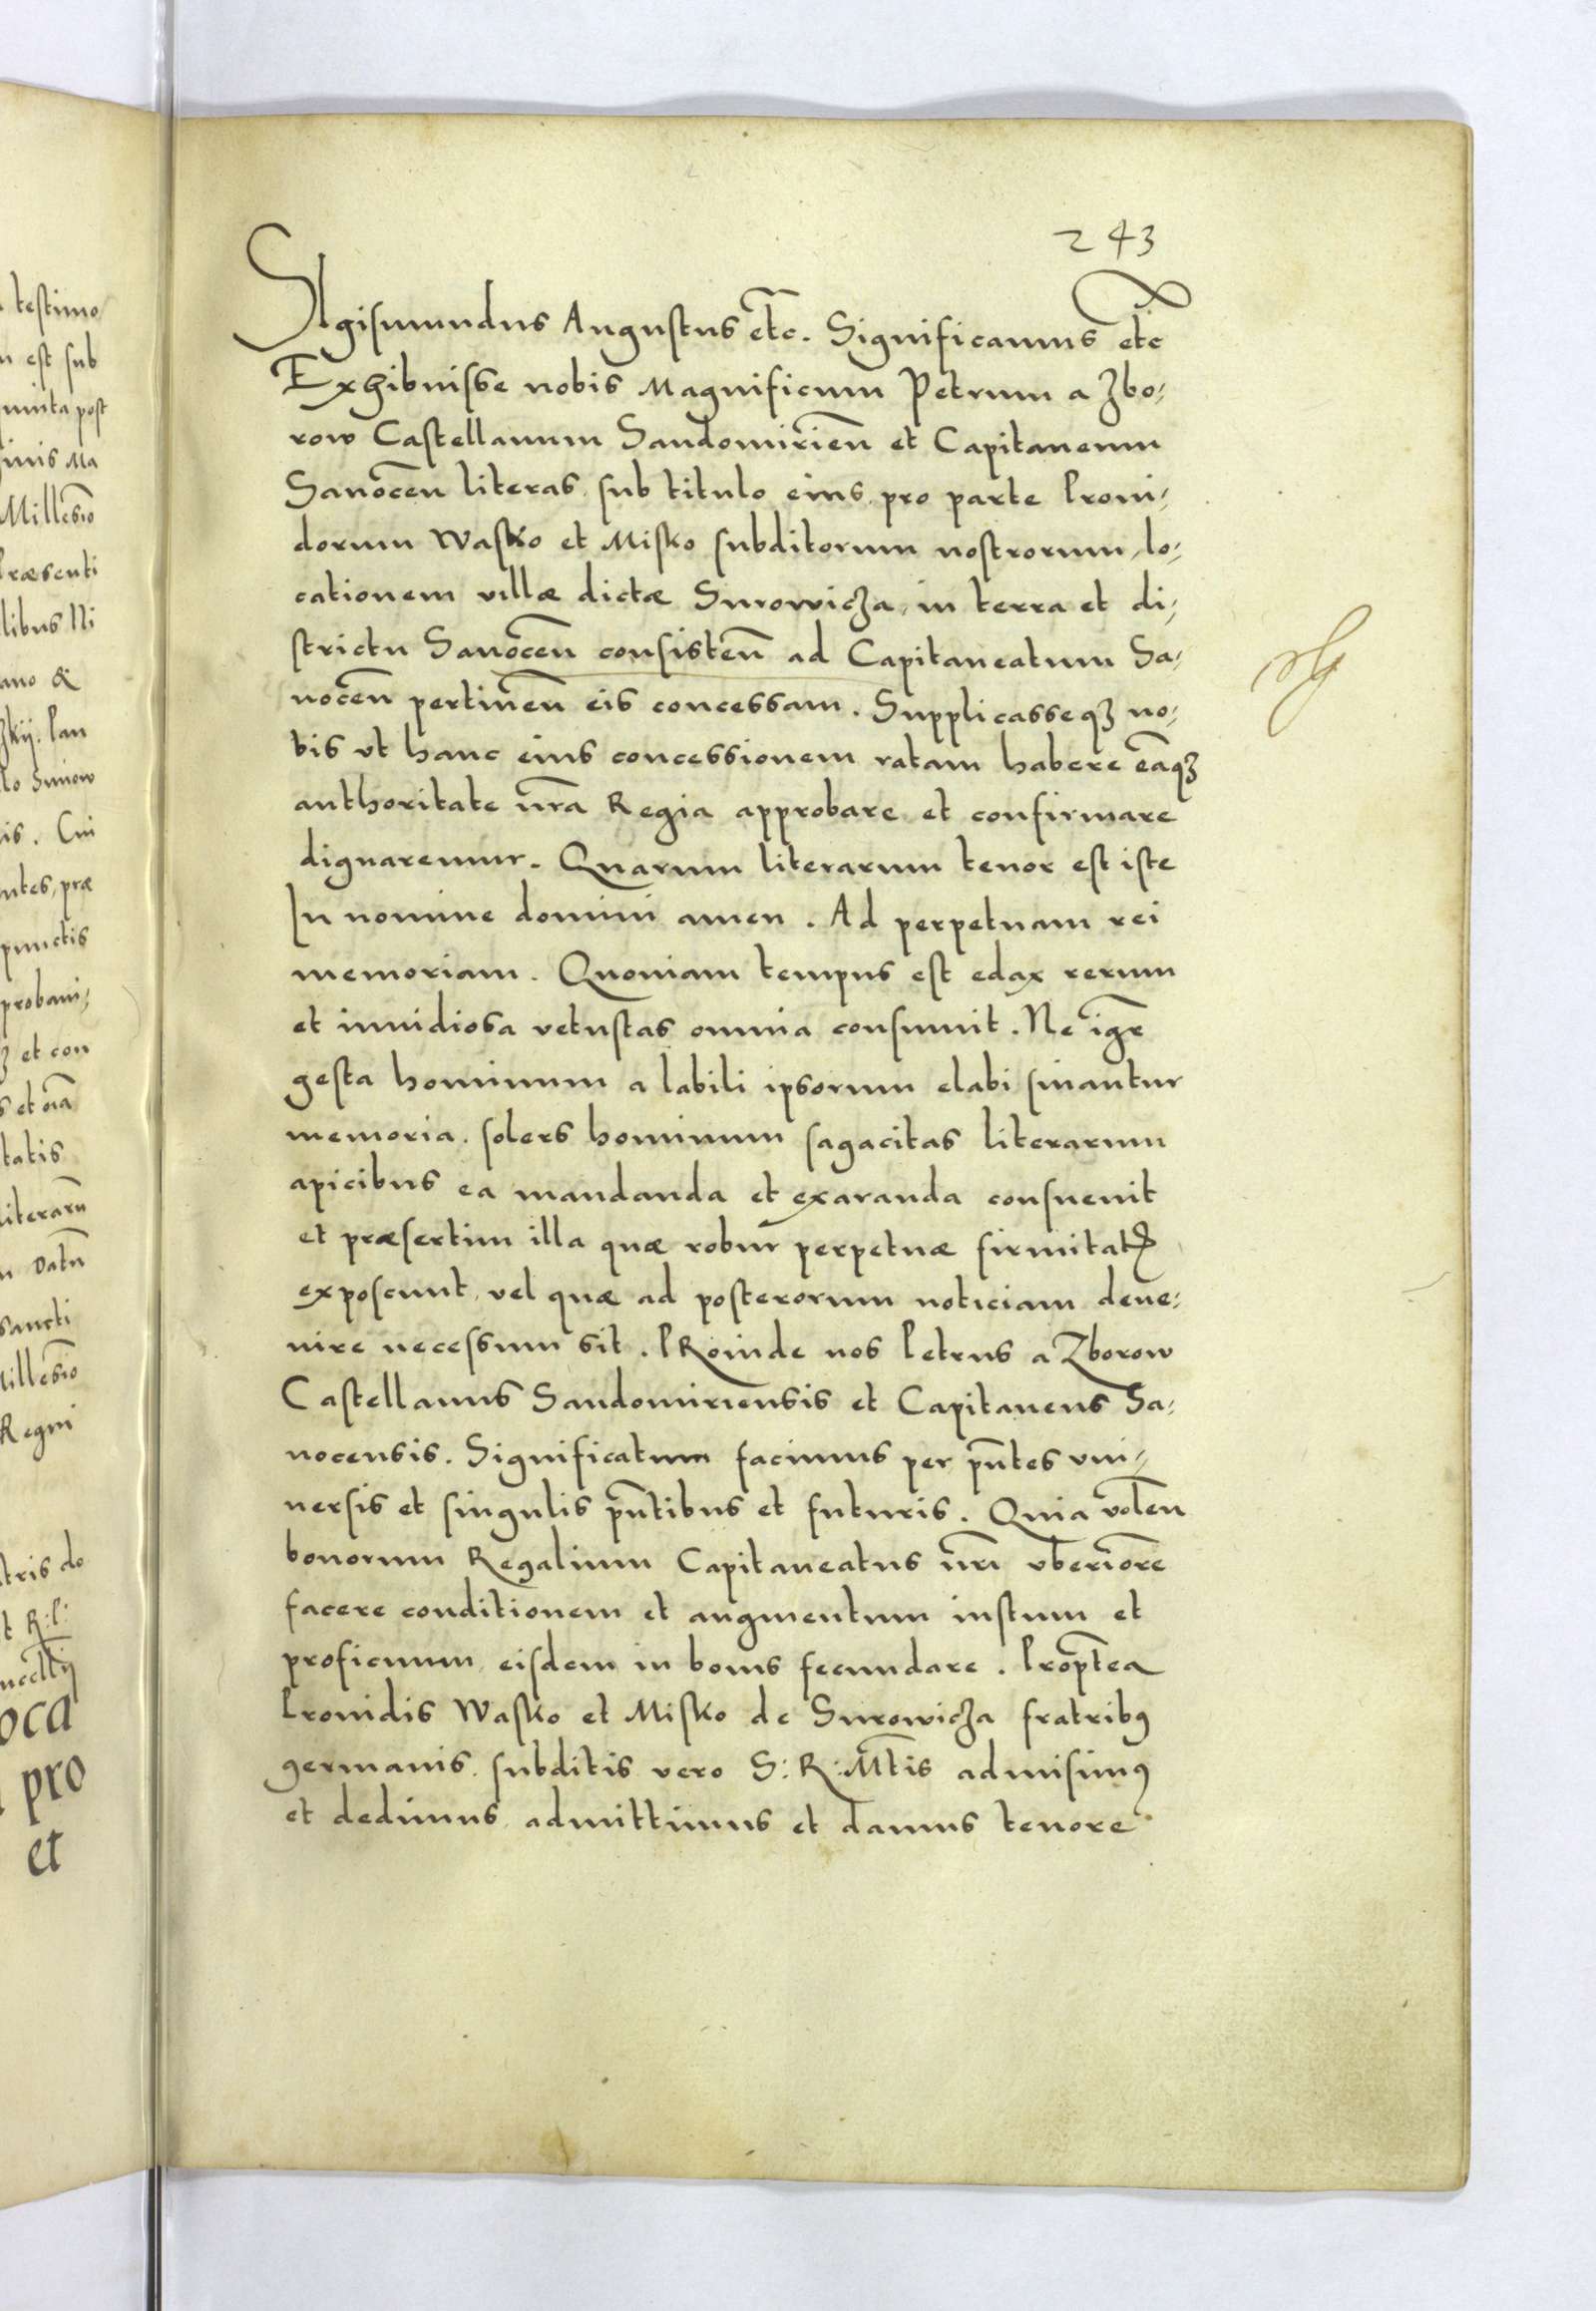 243
SIgismundus Augustus etc. Significamus etc
Exhibuisse nobis Magnificum Petrum a Zbo-
row Castellanum Sandomirien̄ et Capitaneum
Sanocen̄ literas, sub titulo eius, pro parte Proui-
dorum Wasko et Misko subditorum nostrorum, lo-
cationem villæ dictæ Surowicza, in terra et di-
strictu Sanocen̄ consisten̄ ad Capitaneatum Sa-
nocen̄ pertinen̄ eis concessam. Supplicasseqȝ no-
bis vt hanc eius concessionem ratam habere eāqȝ
authoritate nr̄a Regia approbare et confirmare
dignaremur. Quarum literarum tenor est iste
In nomine domini amen. Ad perpetuam rei
memoriam. Quoniam tempus est edax rerum
et inuidiosa vetustas omnia consumit. Ne igr̄
gesta hominum a labili ipsorum elabi sinantur
memoria, solers hominum sagacitas literarum
apicibus ea mandanda et exaranda consueuit
et præsertim illa quæ robur perpetuæ firmitatꝭ
exposcunt, vel quæ ad posterorum noticiam deue-
nire necessum sit. PRoinde nos Petrus a Zborow
Castellanus Sandomiriensis et Capitaneus Sa-
nocensis. Significatum facimus per pn̄tes vni-
uersis et singulis pn̄tibus et futuris. Quia volen̄
bonorum Regalium Capitaneatus nr̄i vberiorē
facere conditionem et augmentum iustum et
proficuum, eisdem in bonis fecundare. Propt̄ea
Prouidis Wasko et Misko de Surowicza fratribꝰ
germanis, subditis vero S: R: Mt̄is admisimꝰ
et dedimus, admittimus et damus tenore